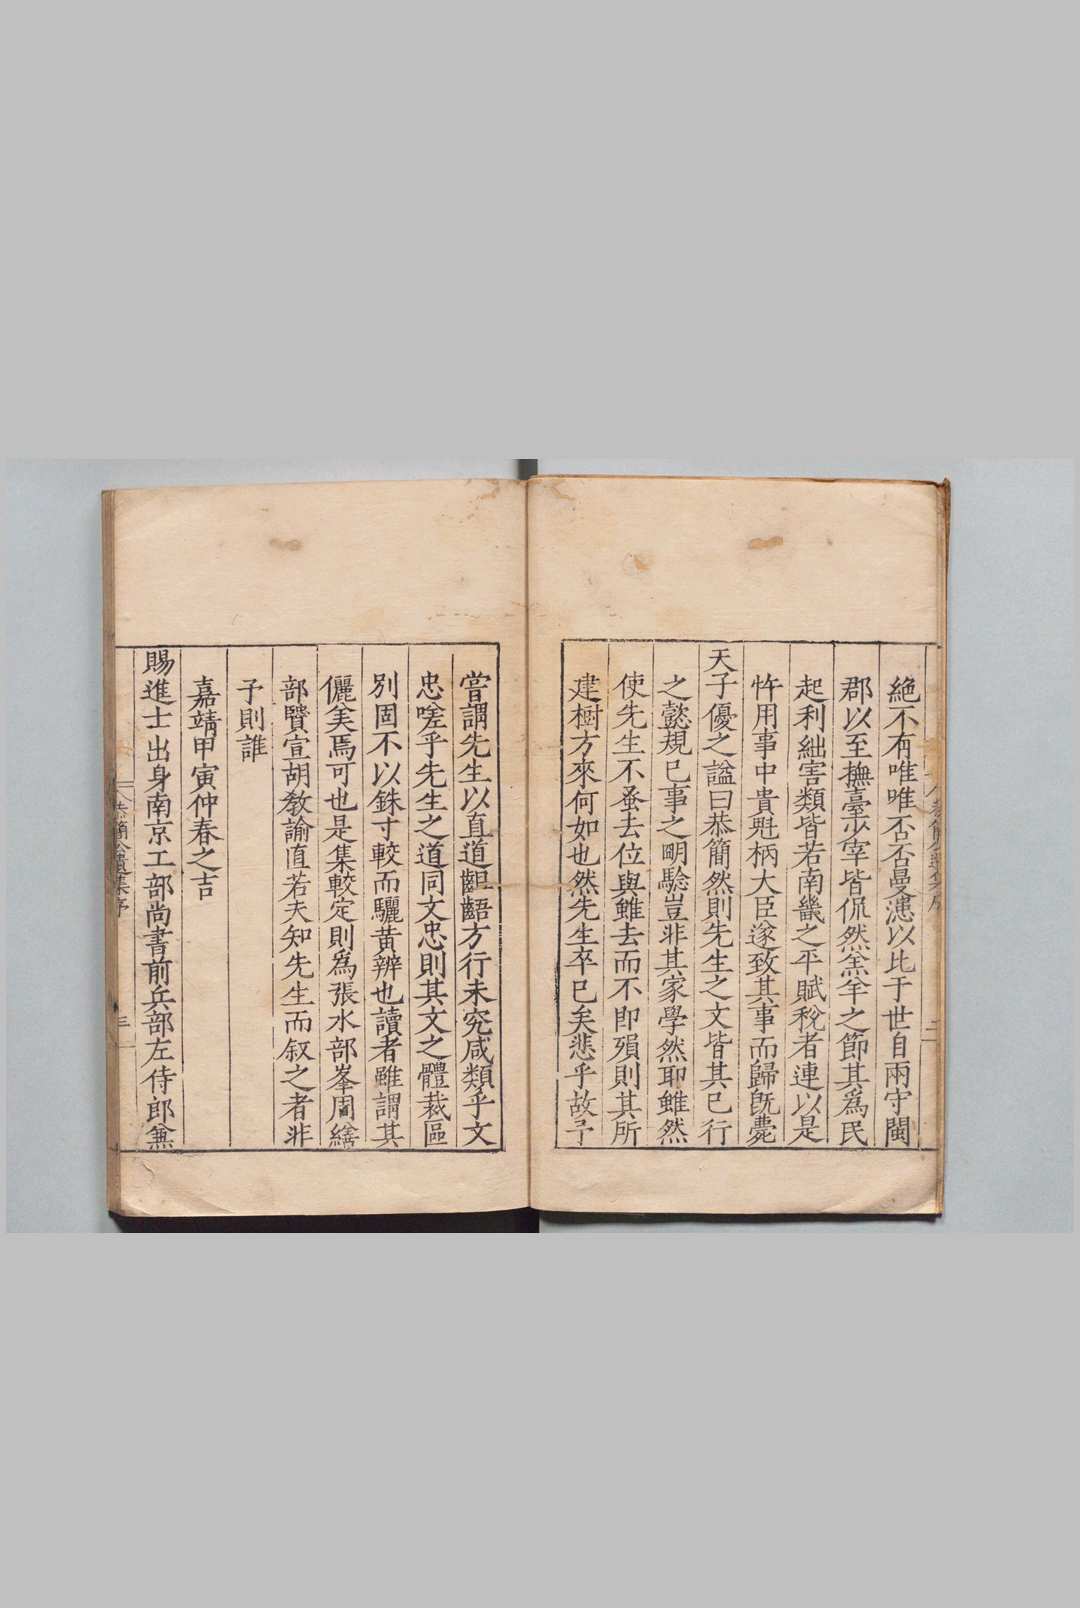 絶不有唯唯否否曼漶以比于世自兩守閩
郡以至撫臺少宰皆侃然羔羊之節其爲民
起利絀害類皆若南畿之平賦稅者連以是
忤用事中貴𠒋柄大臣遂致其事而歸旣薨
天子優之諡曰恭簡然則先生之文皆其已行
之懿規已事之明驗豈非其家學然耶雖然
使先生不蚤去位與雖去而不即殞則其所
建樹方來何如也然先生卒已矣悲乎故予
恭簡公遺集序 二
嘗謂先生以直道齟齬方行未究咸類乎文
忠嗟乎先生之道同文忠則其文之體裁區
別固不以銖寸較而驪黃辨也讀者雖謂其
儷美焉可也是集較定則為張水部峯周繕
部贒宣胡敎諭直若夫知先生而叙之者非
予則誰
嘉靖甲寅仲春之吉
賜進士出身南京工部尚書前兵部左侍郎兼
恭簡公遺集序 三